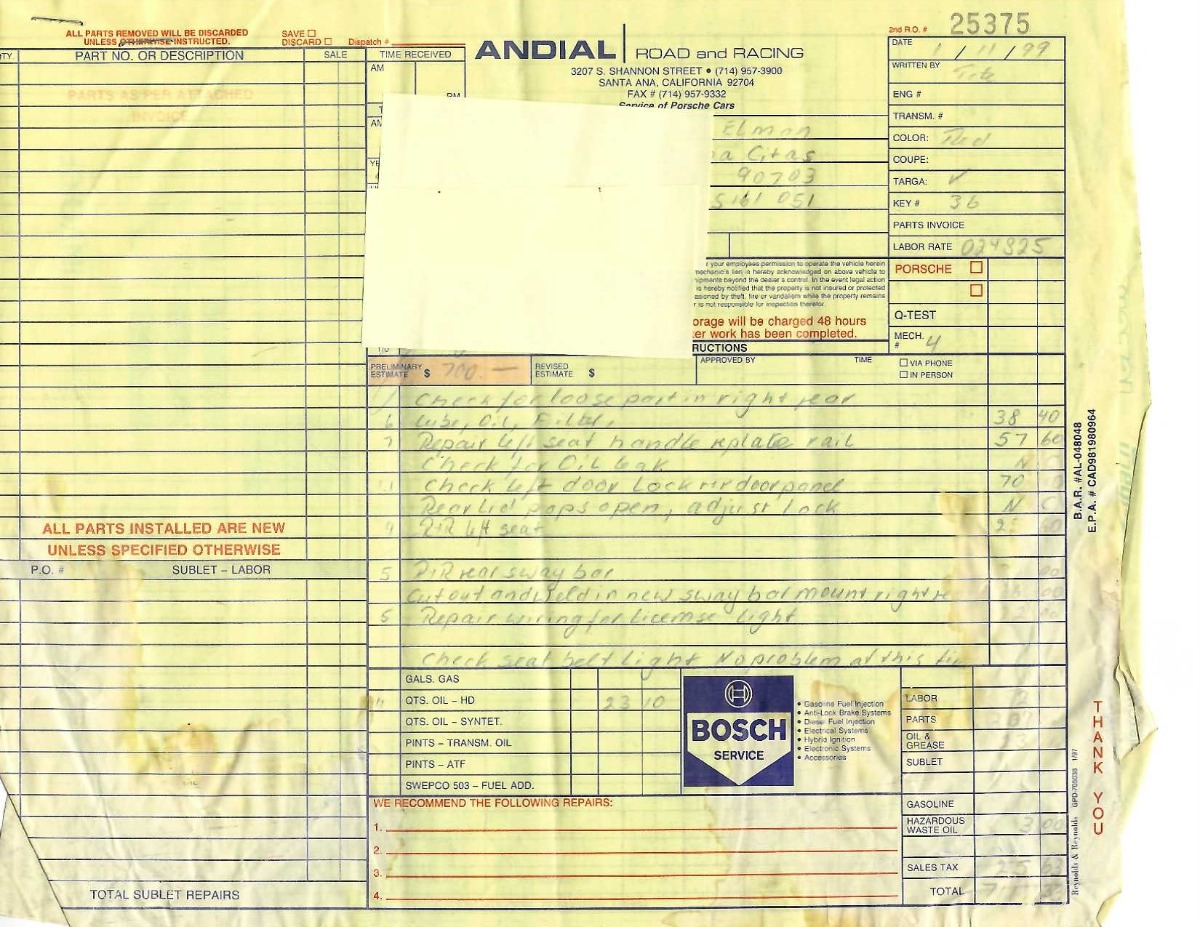 ALL PARTS REMOVED WILL BE DISCARDED
UNLESS OTHERWISE INSTRUCTED.
SAVE ☐
DISCARD ☐
Dispatch #
PART NO. OR DESCRIPTION
SALE
TIME RECEIVED
AM
PM
PARTS AS PER ATTACHED
INVOICE
ANDIAL ROAD and RACING
3207 S. SHANNON STREET • (714) 957-3900
SANTA ANA, CALIFORNIA 92704
FAX # (714) 957-9332
Service of Porsche Cars
2nd R.O. # 25375
DATE 1/11/99
WRITTEN BY
ENG #
TRANSM. #
COLOR: Red
COUPE:
TARGA: ✓
KEY # 36
PARTS INVOICE
LABOR RATE 024825
Elman
90703
S161 051
your employees permission to operate the vehicle herein
mechanic's lien is hereby acknowledged on above vehicle to
beyond the dealer's control. In the event legal action
is hereby notified that the property is not insured or protected
by theft, fire or vandalism while the property remains
is not responsible for inspection therefor.
orage will be charged 48 hours
er work has been completed.
PORSCHE ☐
☐
Q-TEST
MECH. # 4
RUCTIONS
PRELIMINARY ESTIMATE $ 700.—
REVISED ESTIMATE $
APPROVED BY
TIME
☐ VIA PHONE
☐ IN PERSON
1 Check for loose part in right rear
6 Lube, Oil, Filter, 38 40
7 Repair left seat handle replate rail 57 60
Check for Oil leak N
Check left door Lock rr door panel 70
Rear Lid pops open, adjust Lock N C
R+R left seat
5 R+R rear sway bar
Cut out and weld in new sway bar mount right re
5 Repair wiring for License Light
Check seat belt Light No problem at this
ALL PARTS INSTALLED ARE NEW
UNLESS SPECIFIED OTHERWISE
P.O. #
SUBLET – LABOR
TOTAL SUBLET REPAIRS
GALS. GAS
QTS. OIL – HD 23 10
QTS. OIL – SYNTET.
PINTS – TRANSM. OIL
PINTS – ATF
SWEPCO 503 – FUEL ADD.
BOSCH
SERVICE
• Gasoline Fuel Injection
• Anti-Lock Brake Systems
• Diesel Fuel Injection
• Electrical Systems
• Hybrid Ignition
• Electronic Systems
• Accessories
WE RECOMMEND THE FOLLOWING REPAIRS:
1.
2.
3.
4.
LABOR
PARTS
OIL & GREASE
SUBLET
GASOLINE
HAZARDOUS WASTE OIL 3 00
SALES TAX
TOTAL
B.A.R. #AL-048048
E.P.A. # CAD981980964
THANK YOU
Reynolds & Reynolds GPD-705038 1/97